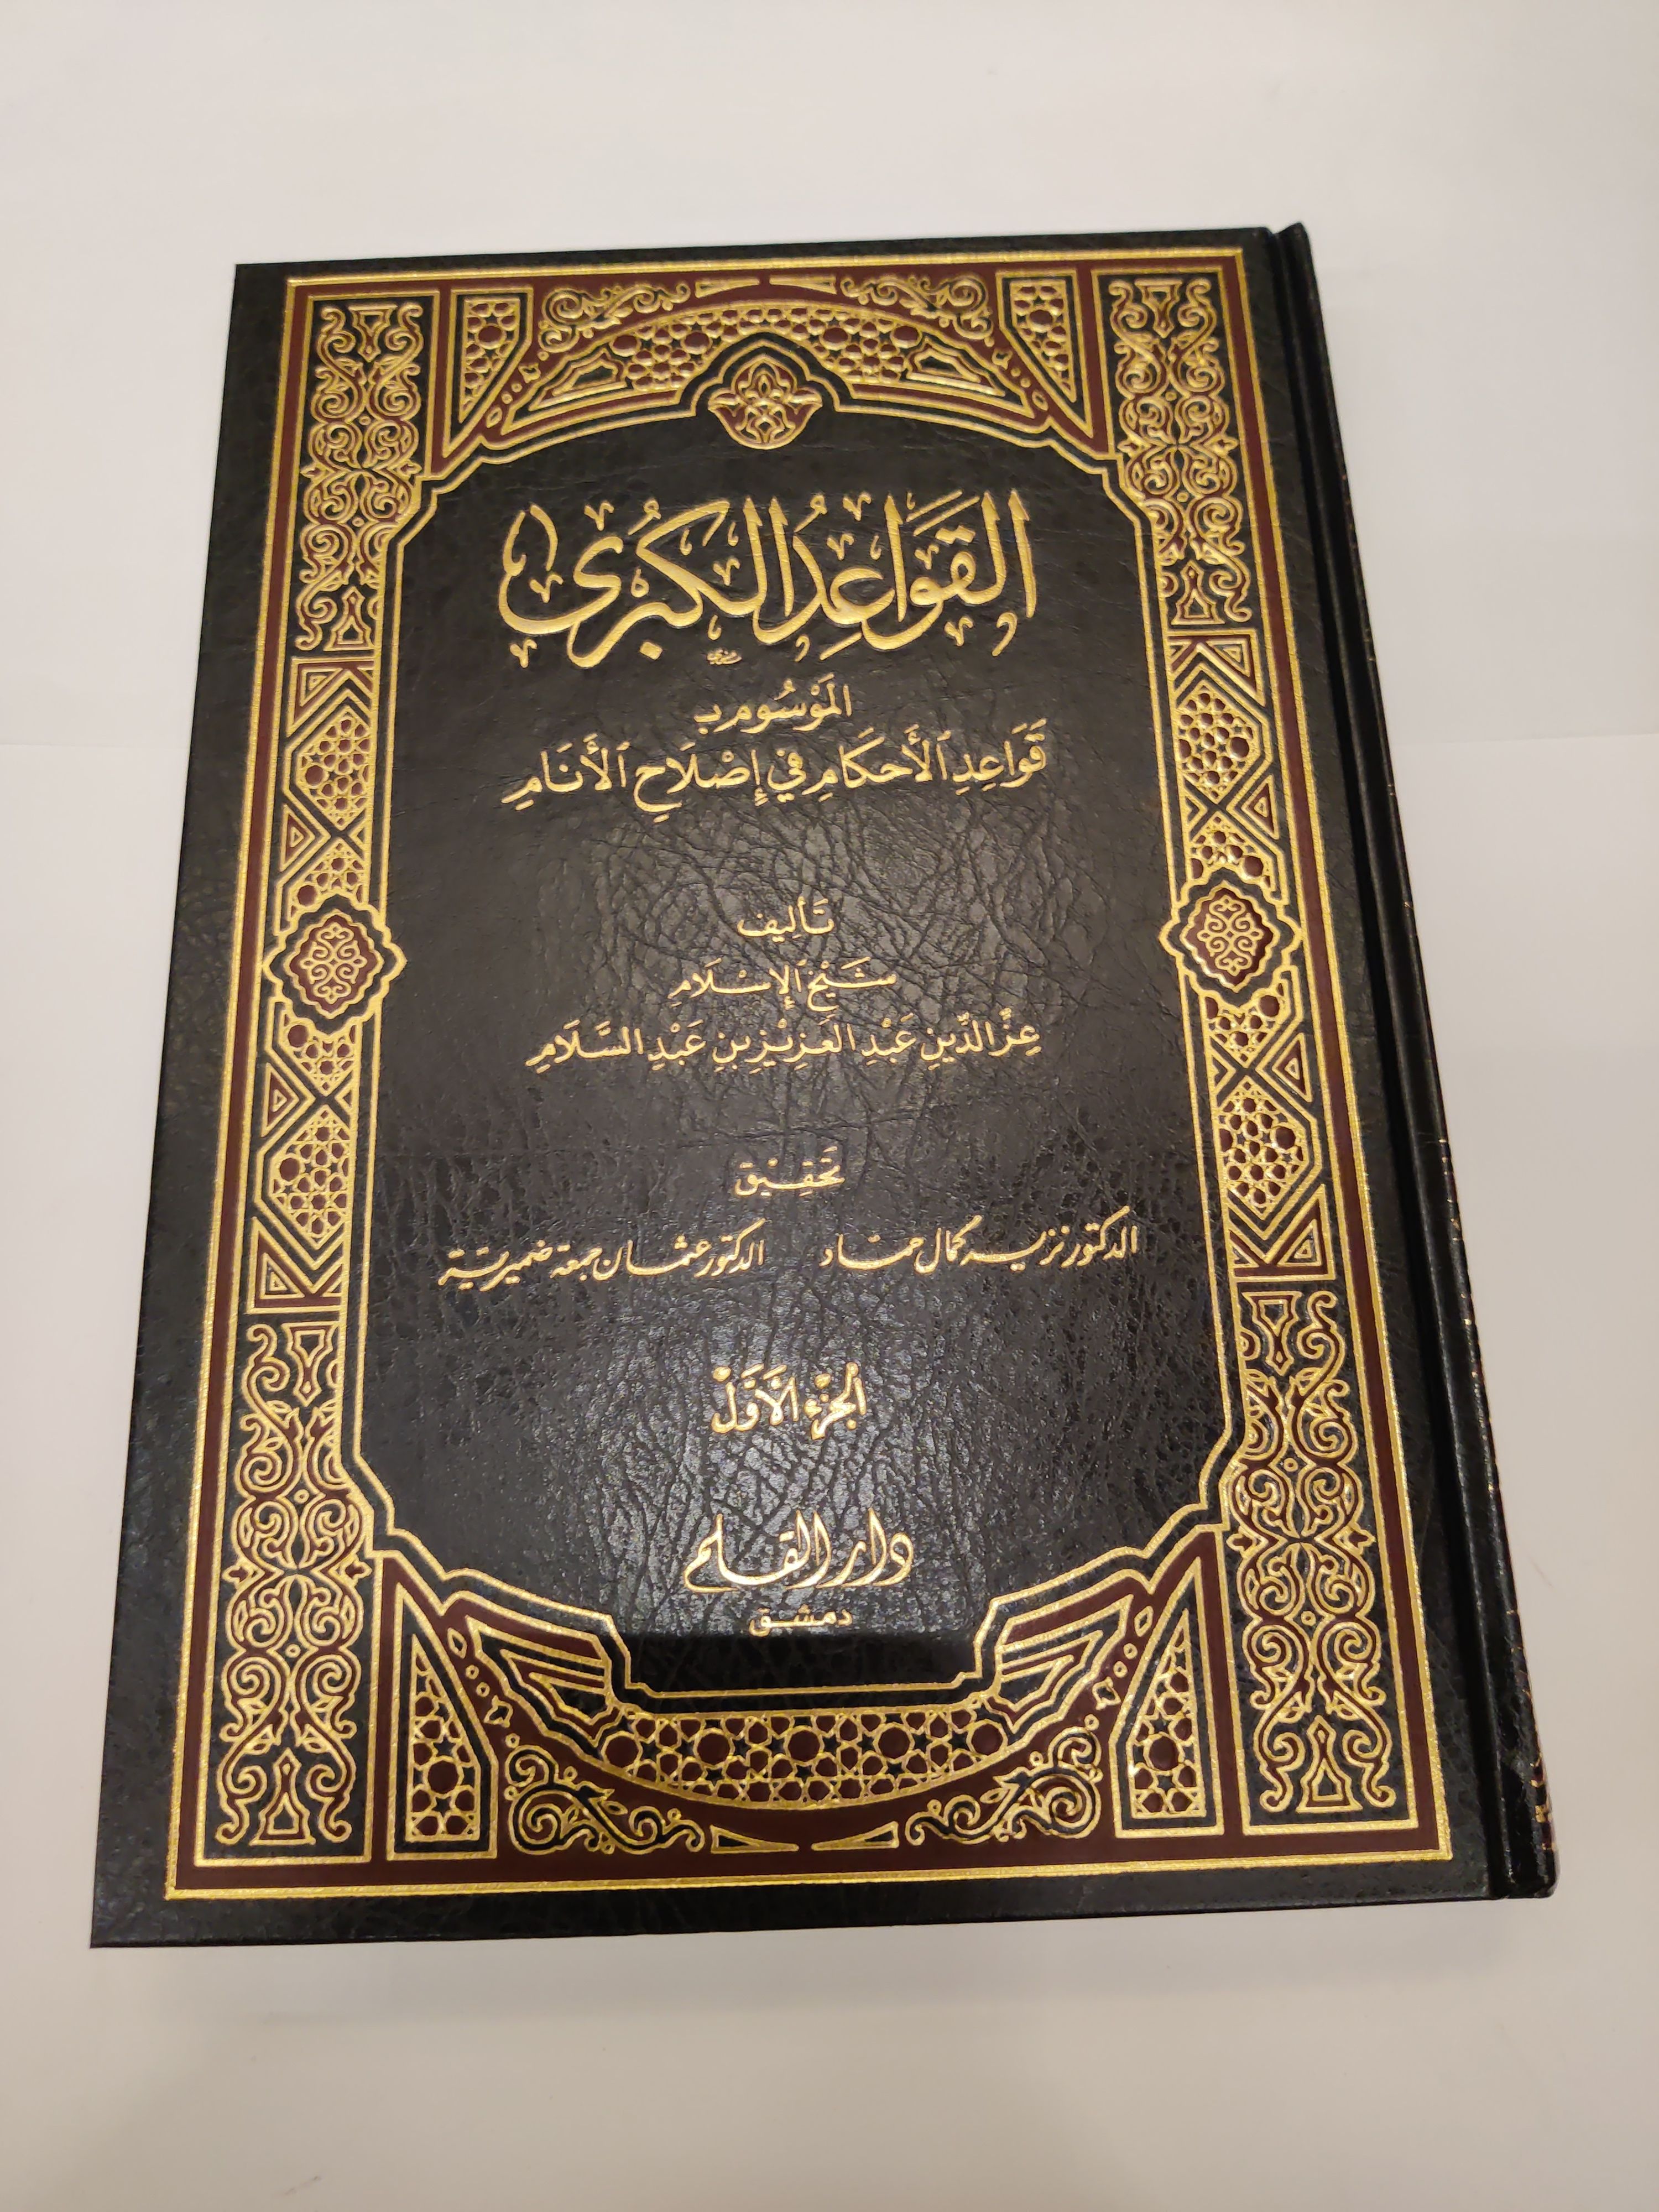 القَوَاعِدُ الكُبْرَى
المَوْسُوم بـ
قَوَاعِدِ الأَحكَامِ فِي إِصْلَاحِ الأَنَامِ
تَأليف
شَيْخِ الإِسْلَامِ
عِزِّ الدِّينِ عَبْدِ العَزِيْزِ بنِ عَبْدِ السَّلَامِ
تَحْقِيْق
الدكتور نزيه كمال حمّاد الدكتور عثمان جمعة ضميريّة
الجُزْءُ الأَوَّلْ
دار القلم
دمشق